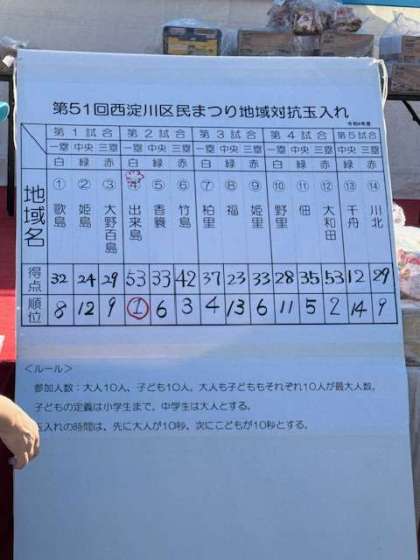 第51回西淀川区民まつり地域対抗玉入れ
令和6年度
第1試合 第2試合 第3試合 第4試合 第5試合
一塁 中央 三塁 一塁 中央 三塁 一塁 中央 三塁 一塁 中央 三塁 中央 三塁
白 緑 赤 白 緑 赤 白 緑 赤 白 緑 赤 緑 赤
地域名 ①歌島 ②姫島 ③大野百島 ④出来島 ⑤香簑 ⑥竹島 ⑦柏里 ⑧福 ⑨姫里 ⑩野里 ⑪佃 ⑫大和田 ⑬千舟 ⑭川北
得点 32 24 29 53 33 42 37 23 33 28 35 53 12 29
順位 8 12 9 1 6 3 4 13 6 11 5 2 14 9
<ルール>
参加人数:大人10人、子ども10人。大人も子どももそれぞれ10人が最大人数。
子どもの定義は小学生まで、中学生は大人とする。
玉入れの時間は、先に大人が10秒、次にこどもが10秒とする。